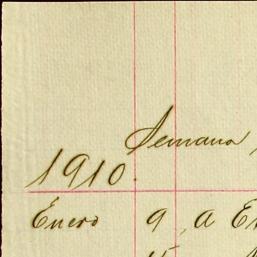 Semana
1910.
Enero 9, a En
15